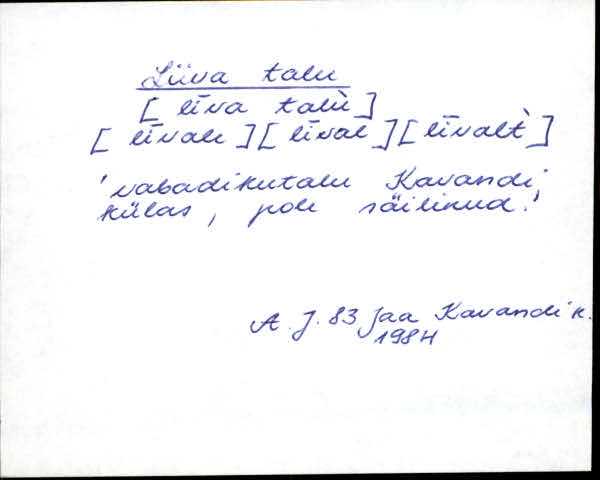 Liiva talu
[līva talù]
[līvale] [līval] [līvalt̀]
'vabadikutalu Kavandi
külas, pole säilinud.'
A. J. 83 Jaa Kavandi k.
1984